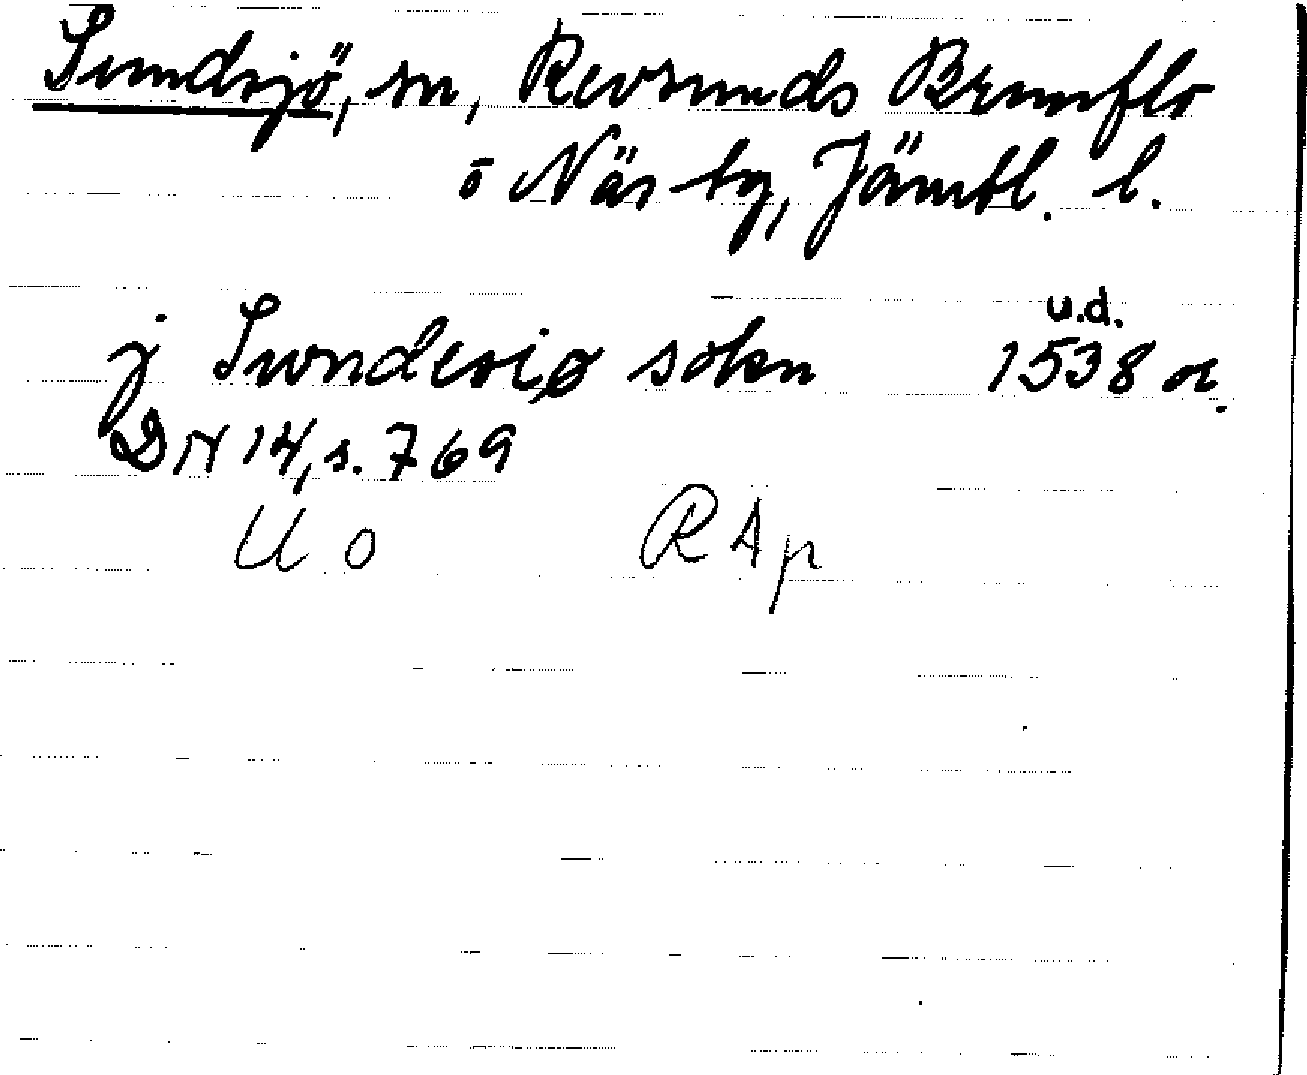 Sundsjö, sn, Revsunds Brunflo
o Näs tg, Jämtl. l.
u.d.
j Swndesiø sokn 1538 or.
DN 14, s. 769
U O RAp